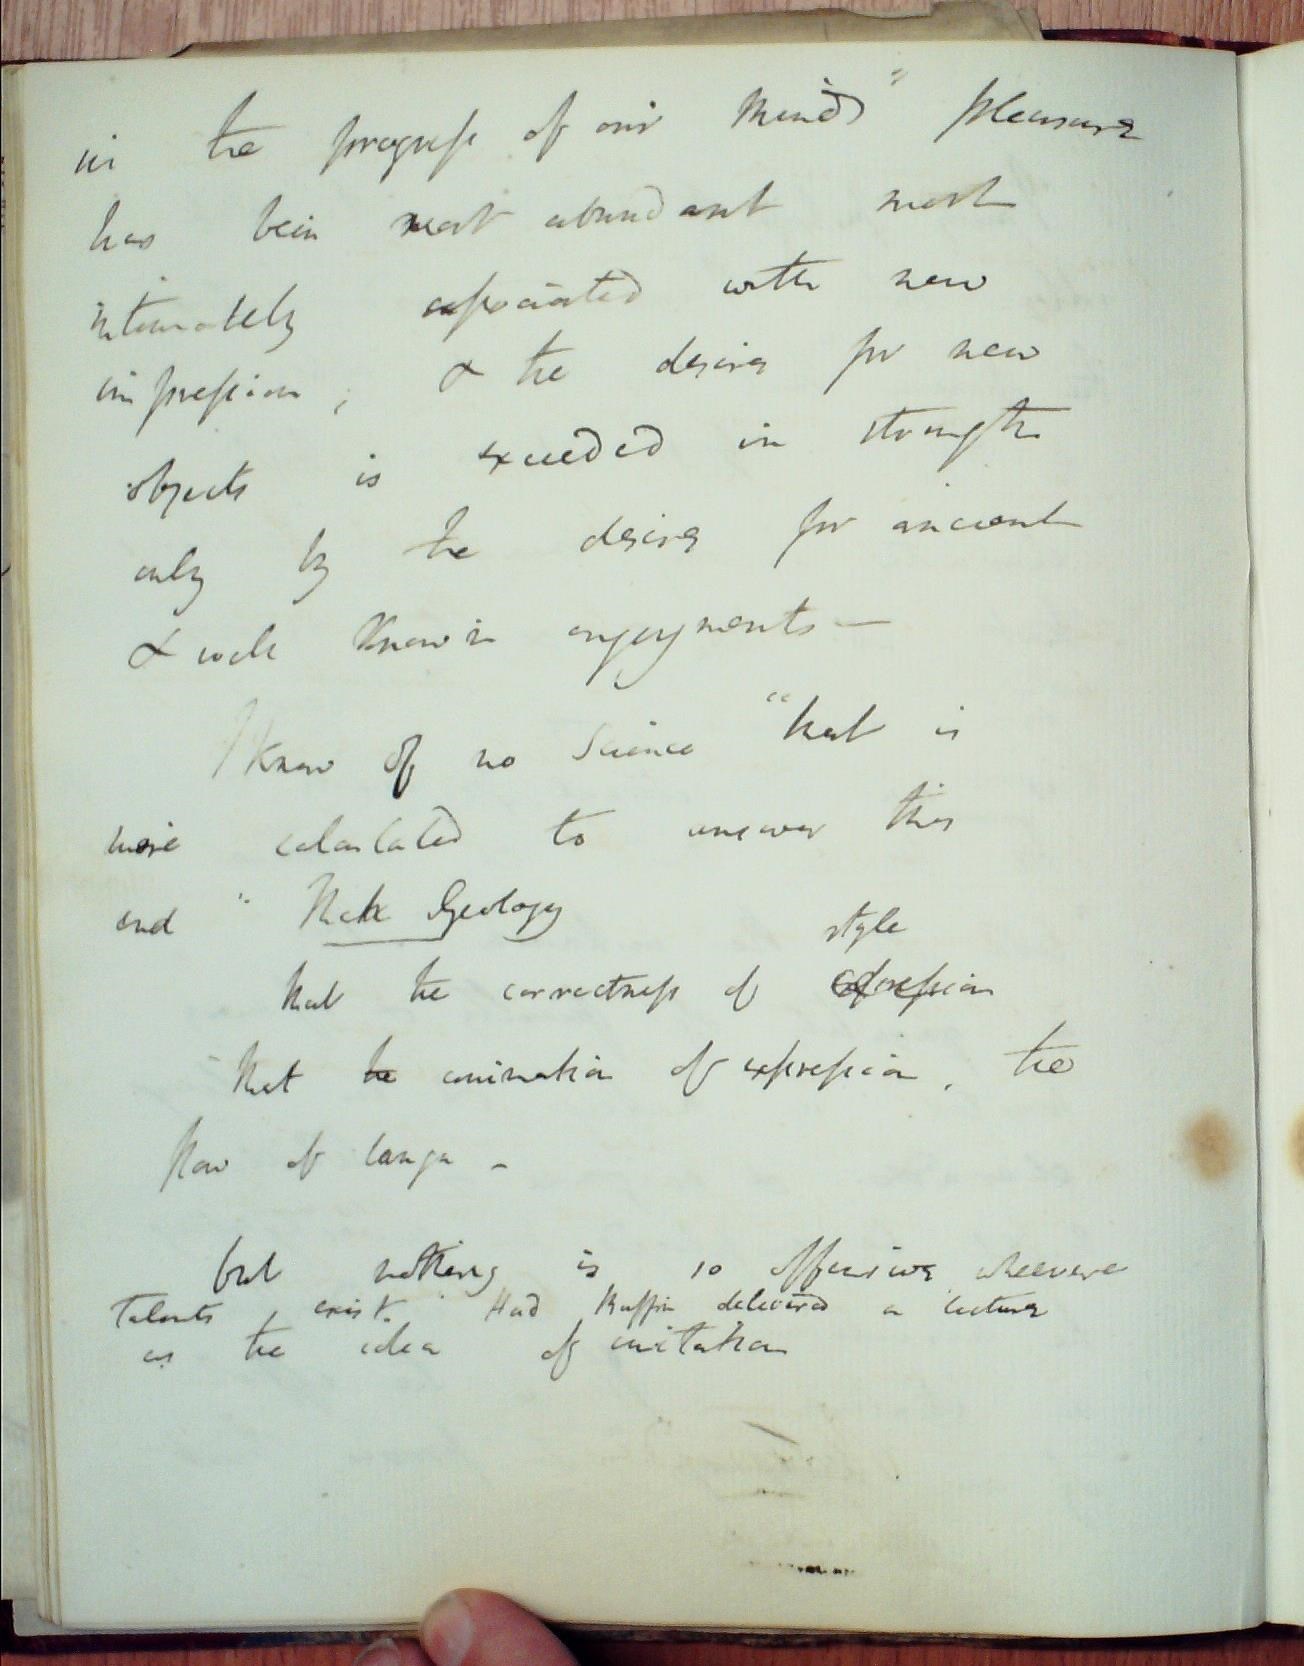 in the progress of our minds" pleasure
has been most abundant most
intimately associated with new
impression, & the desire for new
objects is exceeded in strength
only by the desire for ancient
& well known enjoyments —
I know of no Science "that is
more calculated to answer this
end " than Geology
style
that the correctness of expression
that the animation of expression, the
flow of langu -
but nothing is so offensive wheever
Talents exist. Had Buffon delivered a lecture
as the idea of imitation